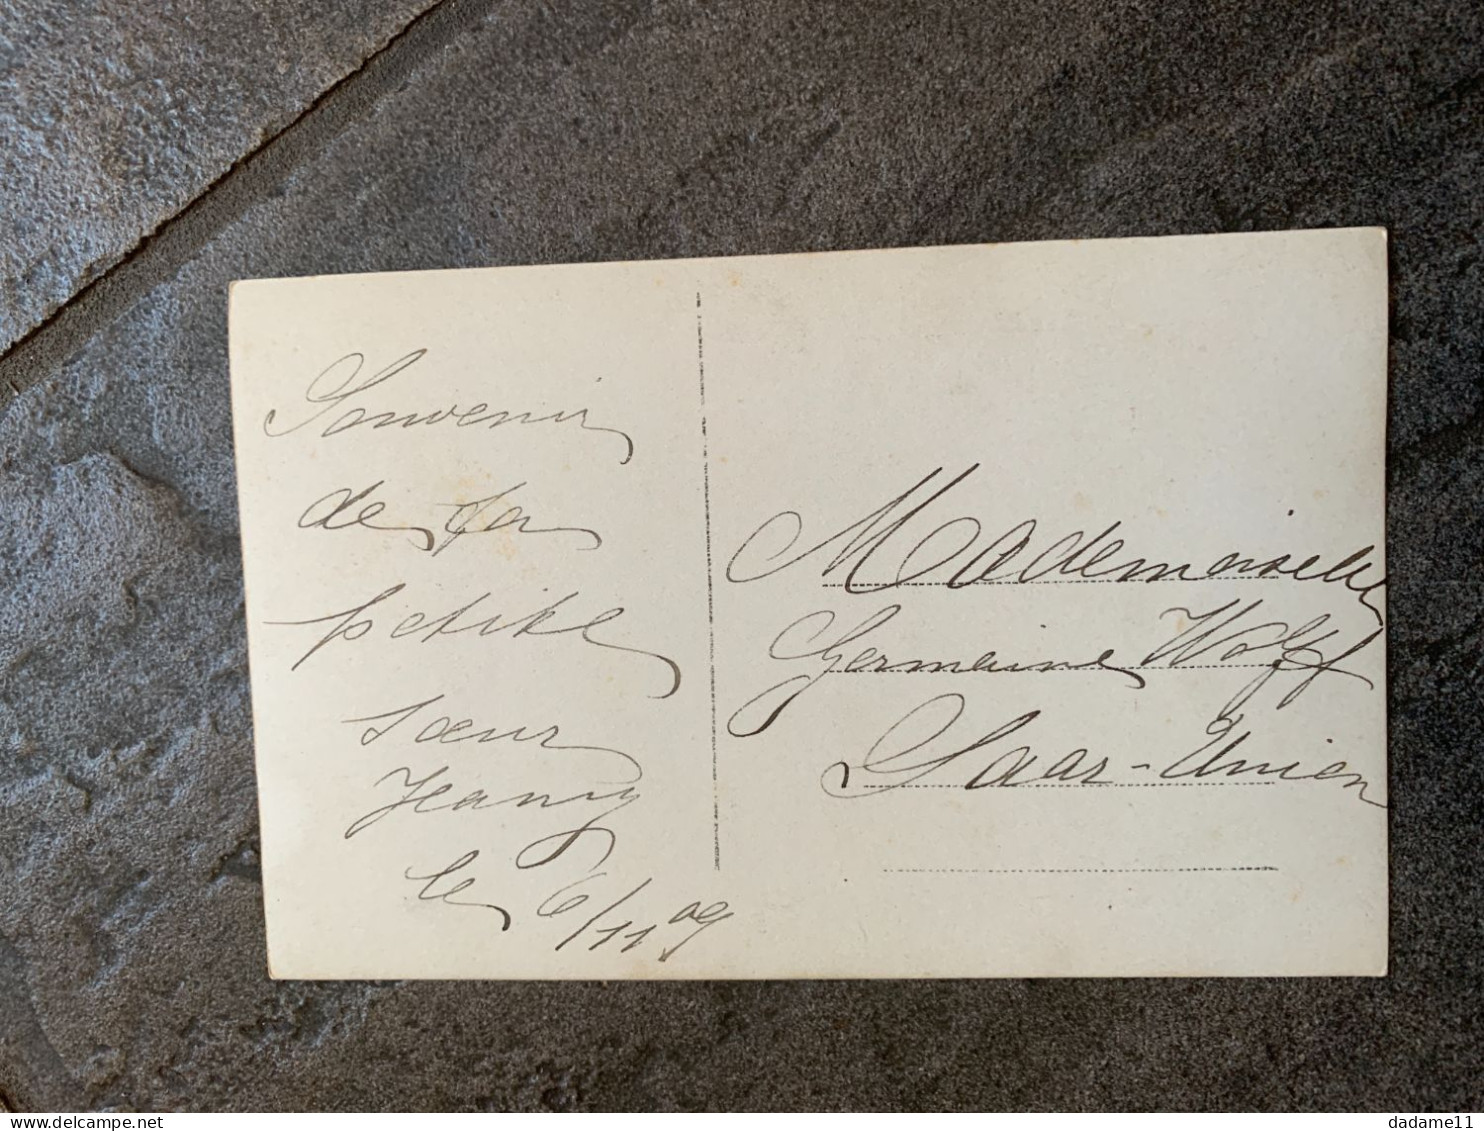 Souvenir
de ta
petite
sœur
Jeany
le 6/11 09
Mademoiselle
Germaine Wolff
Saar-Union
delcampe.net
dadame11